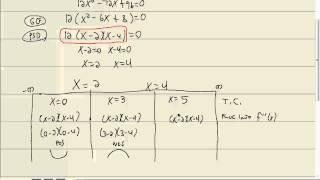 12x² - 72x + 96 = 0
GCF 12(x² - 6x + 8) = 0
PSD 12(x-2)(x-4) = 0
x-2=0 x-4=0
x=2 x=4
x=2 x=4
-∞ ∞
x=0 x=3 x=5 T.C.
(x-2)(x-4) (x-2)(x-4) (x-2)(x-4) Plug into f''(x)
(0-2)(0-4) (3-2)(3-4)
POS NEG